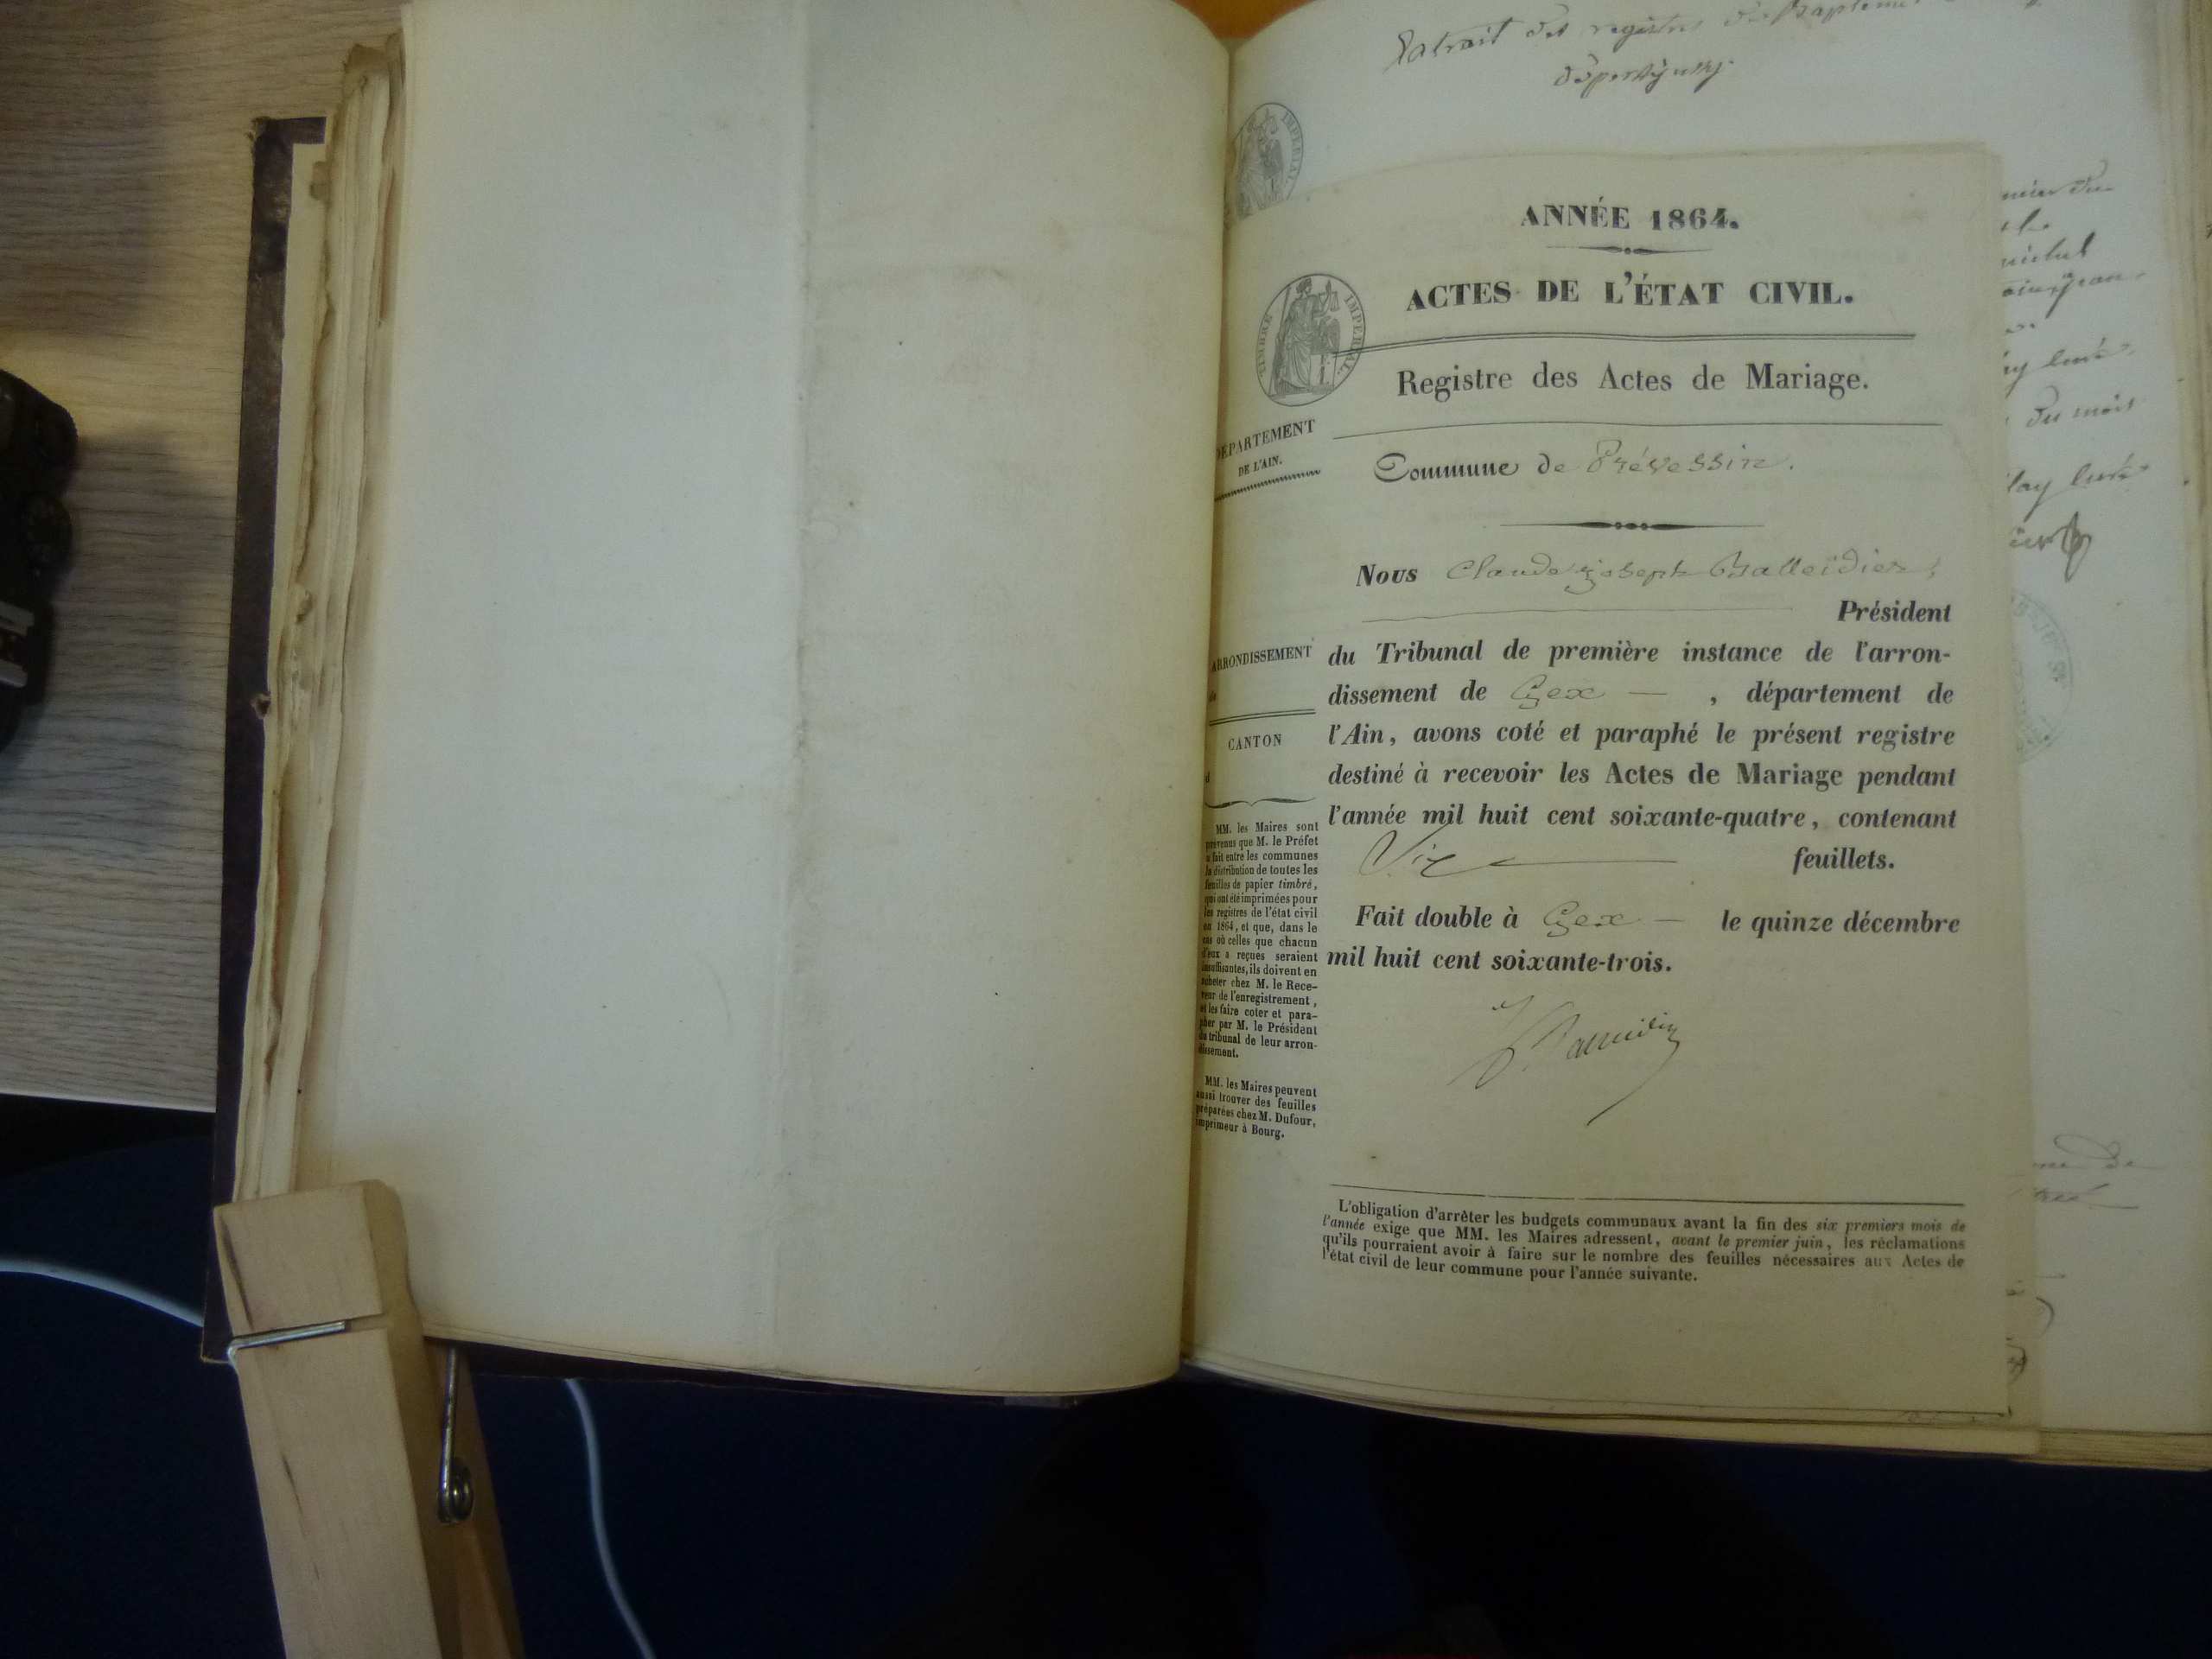 Extrait des registres de Baptême
ANNÉE 1864.
ACTES DE L'ÉTAT CIVIL.
TIMBRE IMPERIAL
IMPERIAL
Registre des Actes de Mariage.
DÉPARTEMENT
DE L'AIN.
Commune de Prévessin.
Nous Claude Joseph Balleidier,
Président
ARRONDISSEMENT
de
CANTON
d
du Tribunal de première instance de l'arron-
dissement de Gex — , département de
l'Ain, avons coté et paraphé le présent registre
destiné à recevoir les Actes de Mariage pendant
l'année mil huit cent soixante-quatre, contenant
feuillets.
Fait double à Gex — le quinze décembre
mil huit cent soixante-trois.
MM. les Maires sont
prévenus que M. le Préfet
a fait entre les communes
la distribution de toutes les
feuilles de papier timbré,
qui ont été imprimées pour
les registres de l'état civil
en 1864, et que, dans le
cas où celles que chacun
d'eux a reçues seraient
insuffisantes, ils doivent en
acheter chez M. le Rece-
veur de l'enregistrement,
et les faire coter et para-
pher par M. le Président
du tribunal de leur arron-
dissement.
MM. les Maires peuvent
aussi trouver des feuilles
préparées chez M. Dufour,
imprimeur à Bourg.
L'obligation d'arrêter les budgets communaux avant la fin des six premiers mois de
l'année exige que MM. les Maires adressent, avant le premier juin, les réclamations
qu'ils pourraient avoir à faire sur le nombre des feuilles nécessaires aux Actes de
l'état civil de leur commune pour l'année suivante.
du mois